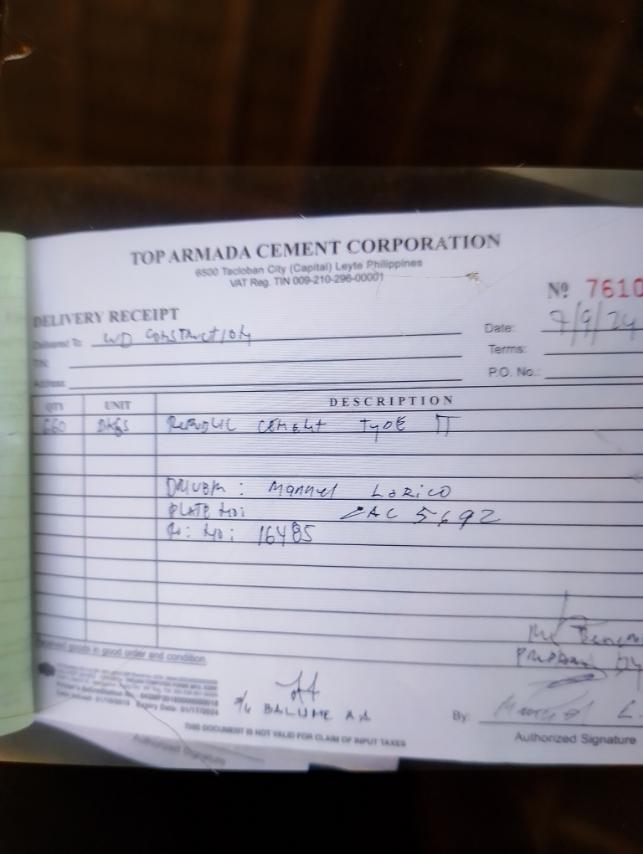 TOP ARMADA CEMENT CORPORATION
6500 Tacloban City (Capital) Leyte Philippines
VAT Reg. TIN 009-210-296-00001
Nº 7610
DELIVERY RECEIPT
Delivered To WD Construction
Date: 7/9/24
TIN:
Terms:
Address:
P.O. No.:
QTY UNIT DESCRIPTION
660 BKGS REPUBLIC CEMENT TYPE II
DRIVER: Mannuel Lorico
PLATE NO: 5692
No: 16485
Received goods in good order and condition.
BALUME AA
By:
Authorized Signature
THIS DOCUMENT IS NOT VALID FOR CLAIM OF INPUT TAXES
Authorized Signature